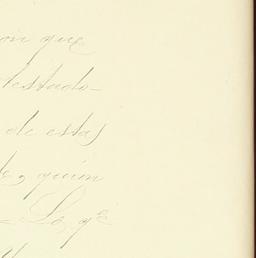 ón que
testado-
de esta,
te, quien
Lo qe